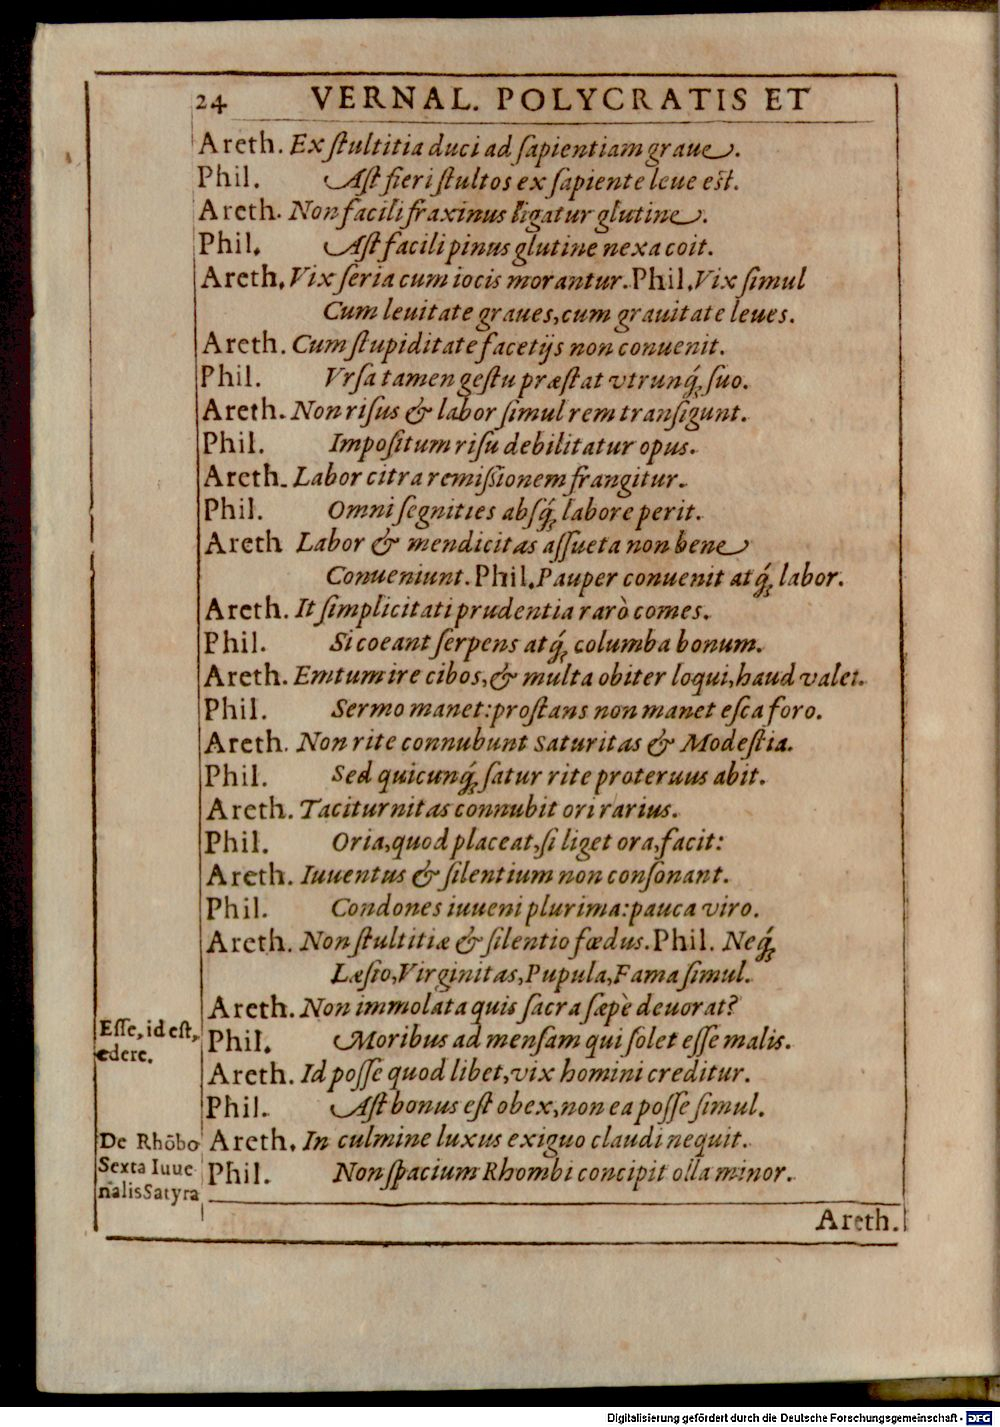 24 VERNAL. POLYCRATIS ET
Areth. Ex ſtultitia duci ad ſapientiam graue.
Phil. Aſt fieri ſtultos ex ſapiente leue eſt.
Areth. Non facili fraxinus ligatur glutine.
Phil. Aſt facili pinus glutine nexa coit.
Areth. Vix ſeria cum iocis morantur. Phil. Vix ſimul
Cum leuitate graues, cum grauitate leues.
Areth. Cum ſtupiditate facetijs non conuenit.
Phil. Vrſa tamen geſtu præſtat vtrunq́ꝫ ſuo.
Areth. Non riſus & labor ſimul rem tranſigunt.
Phil. Impoſitum riſu debilitatur opus.
Areth. Labor citra remiſſionem frangitur.
Phil. Omni ſegnities abſq́ꝫ labore perit.
Areth Labor & mendicitas aſſueta non bene
Conueniunt. Phil. Pauper conuenit atq́ꝫ labor.
Areth. It ſimplicitati prudentia rarò comes.
Phil. Si coeant ſerpens atq́ꝫ columba bonum.
Areth. Emtum ire cibos, & multa obiter loqui, haud valet.
Phil. Sermo manet: proſtans non manet eſca foro.
Areth. Non rite connubunt Saturitas & Modeſtia.
Phil. Sed quicunq́ꝫ ſatur rite proteruus abit.
Areth. Taciturnitas connubit ori rarius.
Phil. Oria, quod placeat, ſi liget ora, facit:
Areth. Iuuentus & ſilentium non conſonant.
Phil. Condones iuueni plurima: pauca viro.
Areth. Non ſtultitiæ & ſilentio fœdus. Phil. Neq́ꝫ
Læſio, Virginitas, Pupula, Fama ſimul.
Areth. Non immolata quis ſacra ſæpè deuorat?
Eſſe, id eſt,
edere.
Phil. Moribus ad menſam qui ſolet eſſe malis.
Areth. Id poſſe quod libet, vix homini creditur.
Phil. Aſt bonus eſt obex, non ea poſſe ſimul.
De Rhōbo
Sexta Iuue
nalis Satyra
Areth. In culmine luxus exiguo claudi nequit.
Phil. Non ſpacium Rhombi concipit olla minor.
Areth.
Digitalisierung gefördert durch die Deutsche Forschungsgemeinschaft - DFG